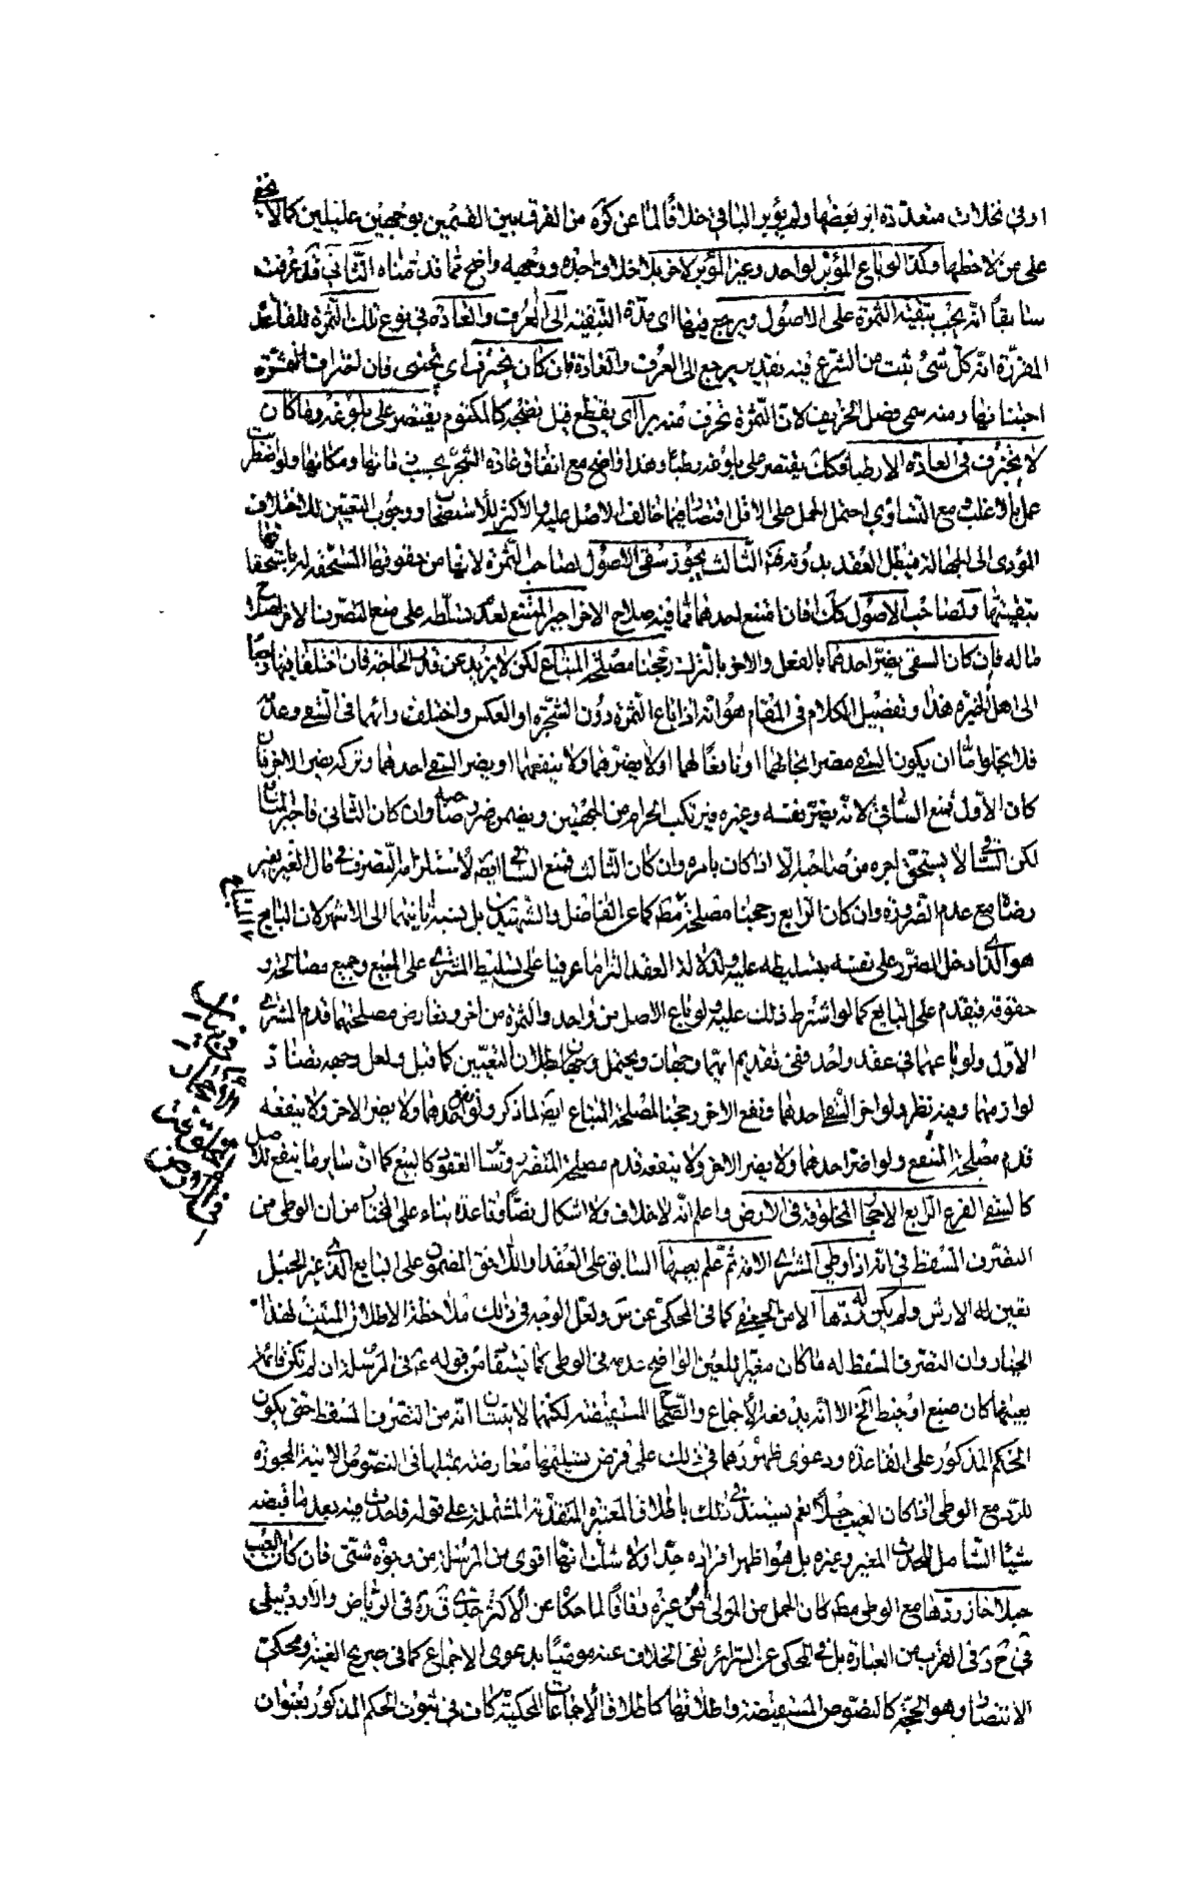 او في نخلات متعددة ابر بعضها ولم يؤبر الباقي خلافًا لما عن كره من الفرق بين القسمين بوجهين عليلين كما لا يخفى
على من لاحظها وكذا لو باع المؤبر لواحد وغير المؤبر لاخر بلا خلاف اجده ووجهه واضح مما قدمناه الثاني قد عرفت
سابقًا انه يجب تبقية الثمرة على الاصول ويرجع فيها اى مدة التبقية الى العرف والعادة في نوع تلك الثمرة للقاعدة
المقررة انه كل شئ ثبت من الشرع فيه تقدير يرجع الى العرف والعادة فان كان يخترف اى يجتنى فان اختراف الثمرة
اجتنائها ومنه سمي فصل الخريف لان الثمرة تخرف منه بسرا اى يقطع قبل نضجه كالمكتوم يقتصر على بلوغه وما كان
لا يخترف في العادة الا رطبا فكك يقتصر على بلوغه رطبا وهذا واضح مع اتفاق عادة الشجر بحسب زمانها ومكانها ولو اضطربت
عمل بالاغلب ومع التساوي احتمل الحمل على الاقل اقتصارا فيما خالف الاصل عليه والاكثر للاستصحاب ووجوب التعيين للاختلاف
المؤدى الى الجهالة فيبطل العقد بدونه الثالث يجوز سقى الاصول لصاحب الثمرة لانها من حقوقها المستحقة له باستحقاقها
بتبقيتها ولصاحب الاصول كك فان امتنع احدهما مما فيه صلاح الاخر اجبر الممتنع لعدم تسلطه على منع التصرف الاخر لصلاح
ماله فإن كان السقى يضر احدهما بالفعل والاخر بالترك رجحنا مصلحة المبتاع لكن لا يزيد عن قدر الحاجة فان اختلفا فيها رجعا
الى اهل الخبرة هذا وتفصيل الكلام في المقام هو انه اذا باع الثمرة دون الشجرة او العكس واختلف رأيهما في السقي وعدمه
فلا يخلو اما ان يكون السقي مضرا بحالهما او نافعًا لهما او لا يضرهما ولا ينفعهما او يضر السقي احدهما وتركه يضر الاخر فان
كان الاول منع الساقي لانه يضر نفسه وغيره فيرتكب الحرام من الجهتين ويضمن ضرر صاحبه وان كان الثاني فاجبر الممتنع
لكن الساقي لا يستحق اجره من صاحبه الا اذا كان بامره وان كان الثالث فمنع الساقي ايضا لاستلزامه التصرف في مال الغير بغير
رضاه مع عدم الضرورة وان كان الرابع رجحنا مصلحة مطلقا كما عن الفاضل والشهيدين بل نسبه ثانيهما الى الاشهر لان البايع
هو الذي ادخل الضرر على نفسه بتسليطه عليه ولدلالة العقد التزاما عرفيا على تسليط المشتري على المبيع وجميع مصالحه و
حقوقه فيقدم على البايع كما لو اشترط ذلك عليه ولو باع الاصل من واحد والثمرة من اخر وتعارض مصلحتهما قدم المشتري
الاول ولو باعهما في عقد واحد ففي تقديم ايهما وجهان ويحتمل وجها بطلان البيعين كما قبل ولعل وجهه تضاد
لوازمهما وفيه نظر ولو اخر السقي احدهما ونفع الاخر رجحنا لمصلحة المبتاع ايضا لما ذكر ولو نفع احدهما ولا يضر الاخر ولا ينفعه
قدم مصلحة المنتفع ولو اضر احدهما ولا يضر الاخر ولا ينفعه قدم مصلحة المتضرر وسائر العقود كالبيع كما ان ساير ما ينفع للاصل
كالسقي الفرع الرابع الاحجار المخلوقة في الارض واعلم انه لا خلاف ولا اشكال نصًا وقاعدة بناء على المختار من ان الوطي من
التصرف المسقط في انه اذا وطي المشتري الامة ثم علم بعيبها السابق على العقد او اللاحق المضمون على البايع الذي غير الحبل
تعين له الارش ولم يكن له ردها الا من الجعفي كما في المحكى عن س ولعل الوجه في ذلك ملاحظة الاطلاق المثبت لهذا
الخيار وان التصرف المسقط له ما كان مغيرا للعين الواضح عدمه في الوطى كما يستفاد من قوله ع في المرسلة ان لم تكن قائما
بعينها كان صبغ او خيط الخ الا انه يدفعه الاجماع والصحاح المستفيضة لكنهما لا يثبتان انه من التصرف المسقط حتى يكون
الحكم المذكور على القاعدة ودعوى ظهورهما في ذلك على فرض تسليمها معارضة بمثلها في النصوص الاتية المجوزة
للرد مع الوطى اذا كان العيب حبلًا نعم يستند في ذلك باطلاق المعتبرة المتقدمة المشتملة على قوله فاحدث فيه بعد ما قبضه
شيئا الشامل للحدث المغير وغيره بل هو اظهر افراده جدا ولا شك انها اقوى من المرسلة من وجوه شتى فان كان العيب
حبلا جاز ردها مع الوطى مطلقا كان الحمل من المولى ام من غيره وفاقًا لما حكاه عن الاكثر جدي قدره في الرياض والاردبيلى
في ح د في القرب من العبارة بل في المحكى عن السرائر نفى الخلاف عنه موميًا به دعوى الاجماع كما في صريح الغنية ومحكى
الانتصار وهو الحجة كالنصوص المستفيضة واطلاقها كاطلاق الاجماعات المحكية كان في ثبوت الحكم المذكور بعنوان